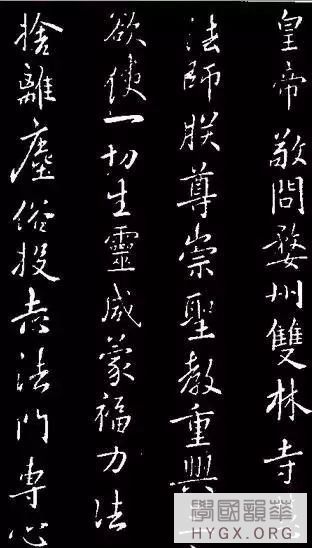 皇帝敬問婺州雙林寺
法師朕尊崇聖教重興
欲使一切生靈咸蒙福力法
捨離塵俗投志法門専心
學國韻華
HYGX.ORG